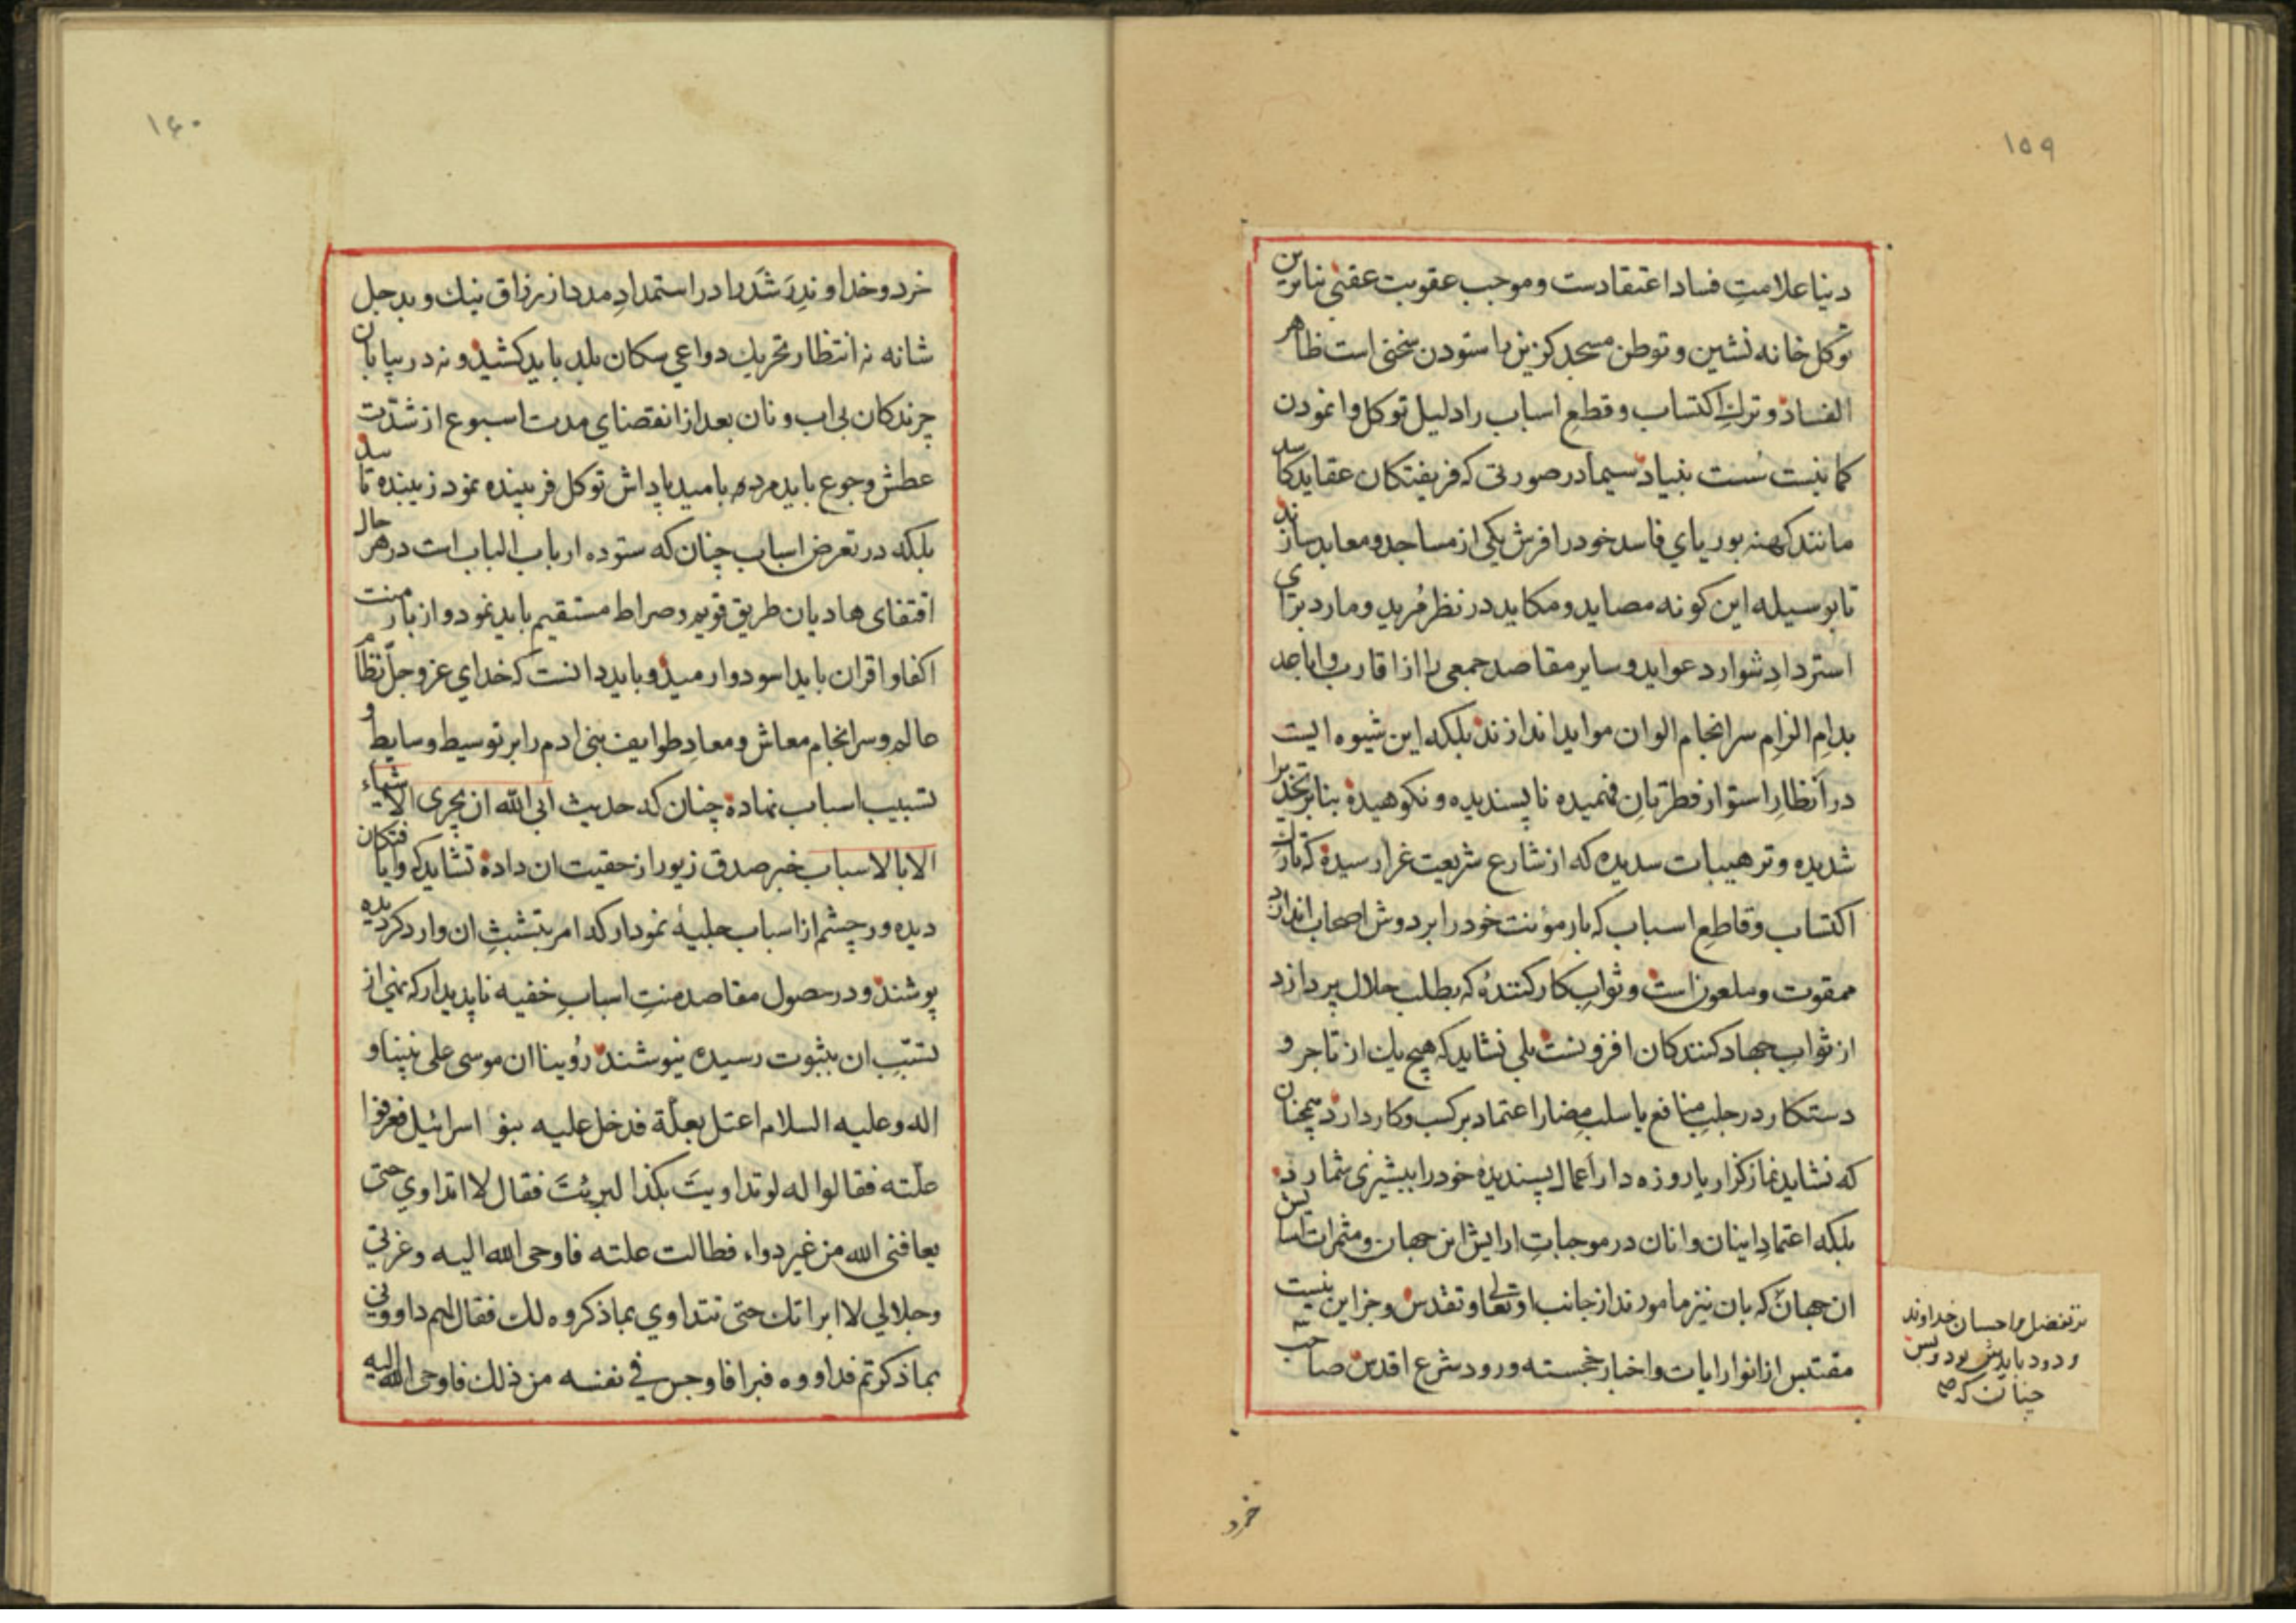 ۱۵۹
دنیا علامتِ فساد اعتقادست و موجب عقوبت عقبی بنابرین
توکل خانه نشین و توطن مسجد کزین را ستودن سخنی است ظاهر
الفساد و ترکِ اکتساب و قطعِ اسباب را دلیل توکل وا نمودن
بنیاد سیما در صورتی که فریفتکان عقاید کاسد
مانند کهنه بوریای فاسد خود را فرش یکی از مساجد و معابد سازند
تا بوسیله این کونه مصاید و مکاید در نظر مُرید و مارد برای
استردادِ شوارد عواید و سایر مقاصد جمعی را از اقارب و اباعد
بدامِ الزامِ سرانجام الوان مواید اندازند بلکه این شیوه ایست
در اَنظارِ استوار فطرتانِ فهمیده ناپسندیده و نکوهیده بنابر تحذیرات
شدیده و ترهیبات سدیده که از شارع شریعت غرا رسیده که تارک
اکتساب و قاطعِ اسباب که بار مؤنت خود را بر دوش اصحاب اندازد
ممقوت و ملعون است و ثوابِ کارکنندهٔ که بطلب حلال پردازد
از ثوابِ جهاد کنندکان افزونست بلی نشاید که هیچ یک از تاجر و
دستکار در جلبِ منافع یا سلبِ مضار اعتماد بر کسب و کار دارد همچنان
که نشاید نمازکزار یا روزه دار اَعمال پسندیدهٔ خود را بیشیزی شمارد
بلکه اعتمادِ اینان و انان در موجباتِ ارایش این جهان و مثمرات اسایش
ان جهان که بان نیز مامورند از جانب او تعالی و تقدس و جز این نیست
مقتبس از انوار ایات و اخبار خجسته ورود شرع اقدس صاحب
بر تفضل و احسان خداوند
ودود باید بود و بس
چنان که صح
خرد
۱۶۰
خرد و خداوندِ رَشَد را در استمدادِ مدد از رزاق نیک و بد جل
شانه نه انتظار تحریک دواعی سکان بلد باید کشید و نه در بیابان
چرندکان بی اب و نان بعد از انقضای مدت اسبوع از شدّت
عطش و جوع باید مرد و بامید پاداش توکل فریبنده نمود زیبنده تاسد
بلکه در تعرض اسباب چنان که ستوده ارباب الباب است در هر حال
اقتفای هادیان طریق قویم و صراط مستقیم باید نمود و از بار منت
اکفا و اقران باید اسود و ارمید و باید دانست که خدای عز و جلّ نظام
عالم و سرانجام معاش و معادِ طوایف بنی ادم را بر توسیط وسایط و
تسبیب اسباب نهاده چنان که حدیث ابی الله ان یجری الاشیاء
الا بالاسباب خبر صدق زیور از حقیت ان داده نشاید که وایافتکان
دیده ور چشم از اسباب جلیهٔ نمودار که امر بتشبثِ ان وارد کردیده
پوشند و در حصول مقاصد منتِ اسبابِ خفیه ناپدیدار که نهی از
تسبّبِ ان بثبوت رسیده نیوشند رُوینا ان موسی علی نبینا و
اله و علیه السلام اعتل بعلّة فدخل علیه بنو اسرائیل فعرفوا
علّته فقالوا له لو تداویتَ بکذا لبرِئتَ فقال لا اتداوی حتی
یعافنی الله من غیر دواء فطالت علته فاوحی الله الیه و عزتی
و جلالی لا ابراتک حتی تتداوی بما ذکروه لک فقال لهم داوونی
بما ذکرتم فداووه فبرا فاوجس فی نفسه من ذلک فاوحی الله الیه